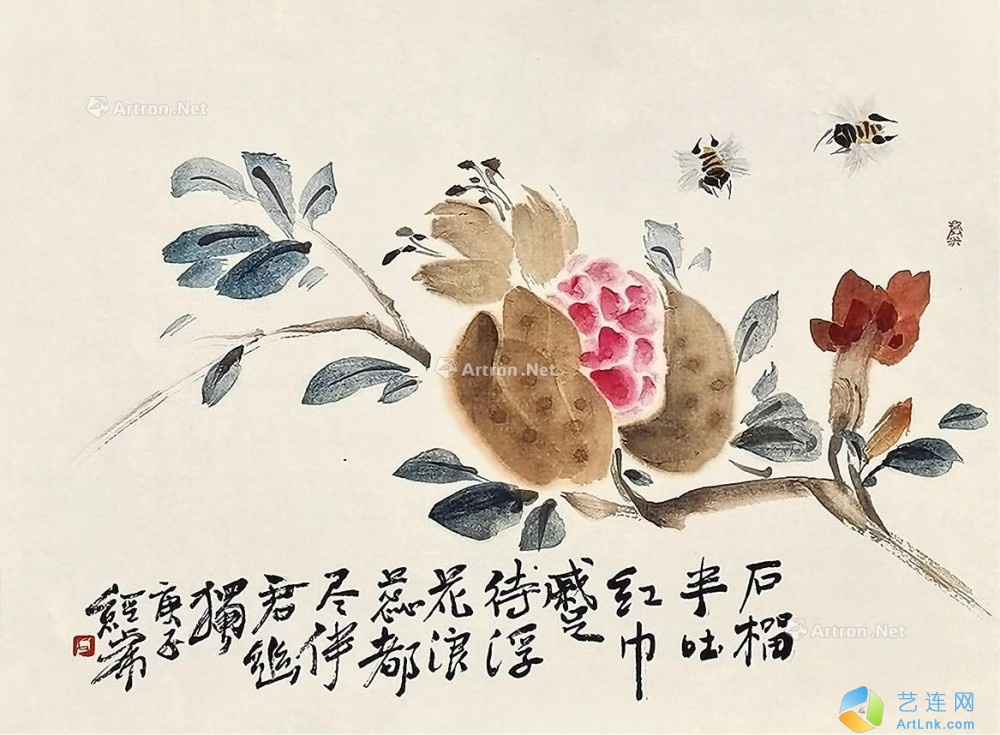 Artron.Net
石榴
半吐
紅巾
蹙
待浮
花浪
蕊都
尽伴
君幽
獨
庚子
Artron.Net
Artron.Net
艺连网
ArtLnk.com